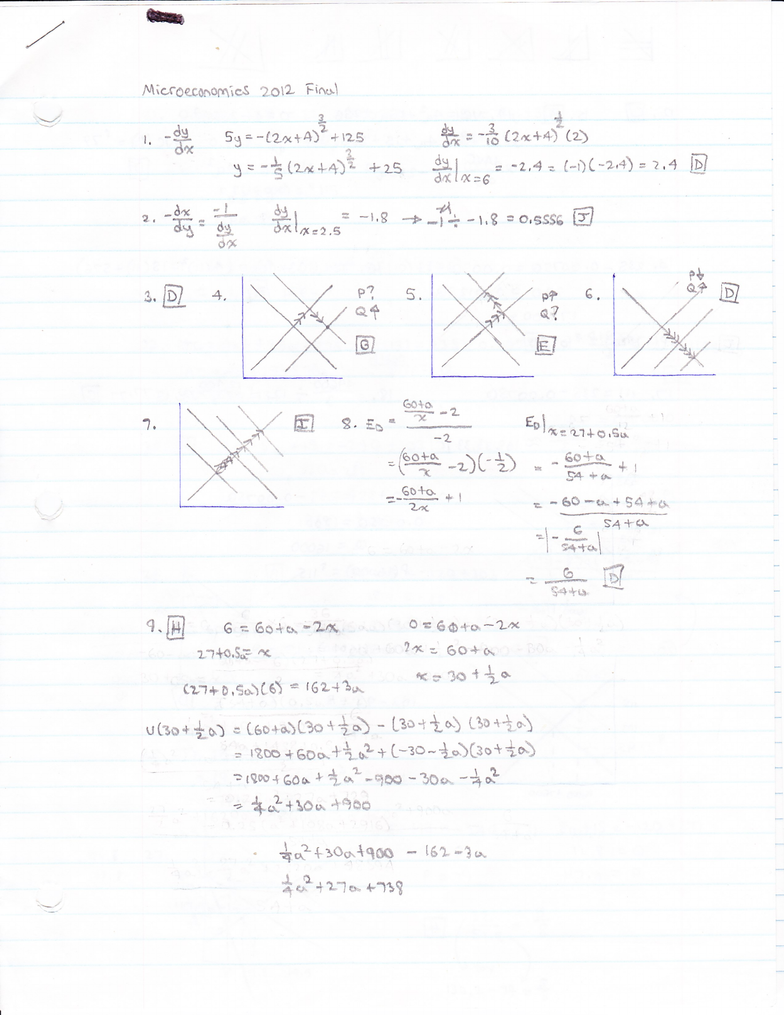 Microeconomics 2012 Final
1. -dy/dx 5y = -(2x+4)^(3/2) + 125 dy/dx = -3/10 (2x+4)^(1/2) (2)
y = -1/5 (2x+4)^(3/2) + 25 dy/dx|x=6 = -2.4 = (-1)(-2.4) = 2.4 D
2. -dx/dy = -1/(dy/dx) dy/dx|x=2.5 = -1.8 → -1 ÷ -1.8 = 0.5556 J
3. D 4. P? Q↑ G 5. P↑ Q? E 6. P↓ Q↑ D
7. I 8. ED = ((60+a)/x - 2)/(-2) ED|x=27+0.5a
= ((60+a)/x - 2)(-1/2) = -(60+a)/(54+a) + 1
= -(60+a)/(2x) + 1 = (-60-a+54+a)/(54+a)
= |-6/(54+a)|
= 6/(54+a) D
9. H 6 = 60+a-2x 0 = 60+a-2x
27+0.5a = x 2x = 60+a
(27+0.5a)(6) = 162+3a x = 30+1/2a
U(30+1/2a) = (60+a)(30+1/2a) - (30+1/2a)(30+1/2a)
= 1800+60a+1/2a²+(-30-1/2a)(30+1/2a)
= 1800+60a+1/2a²-900-30a-1/4a²
= 1/4a²+30a+900
1/4a²+30a+900 - 162-3a
1/4a²+27a+738